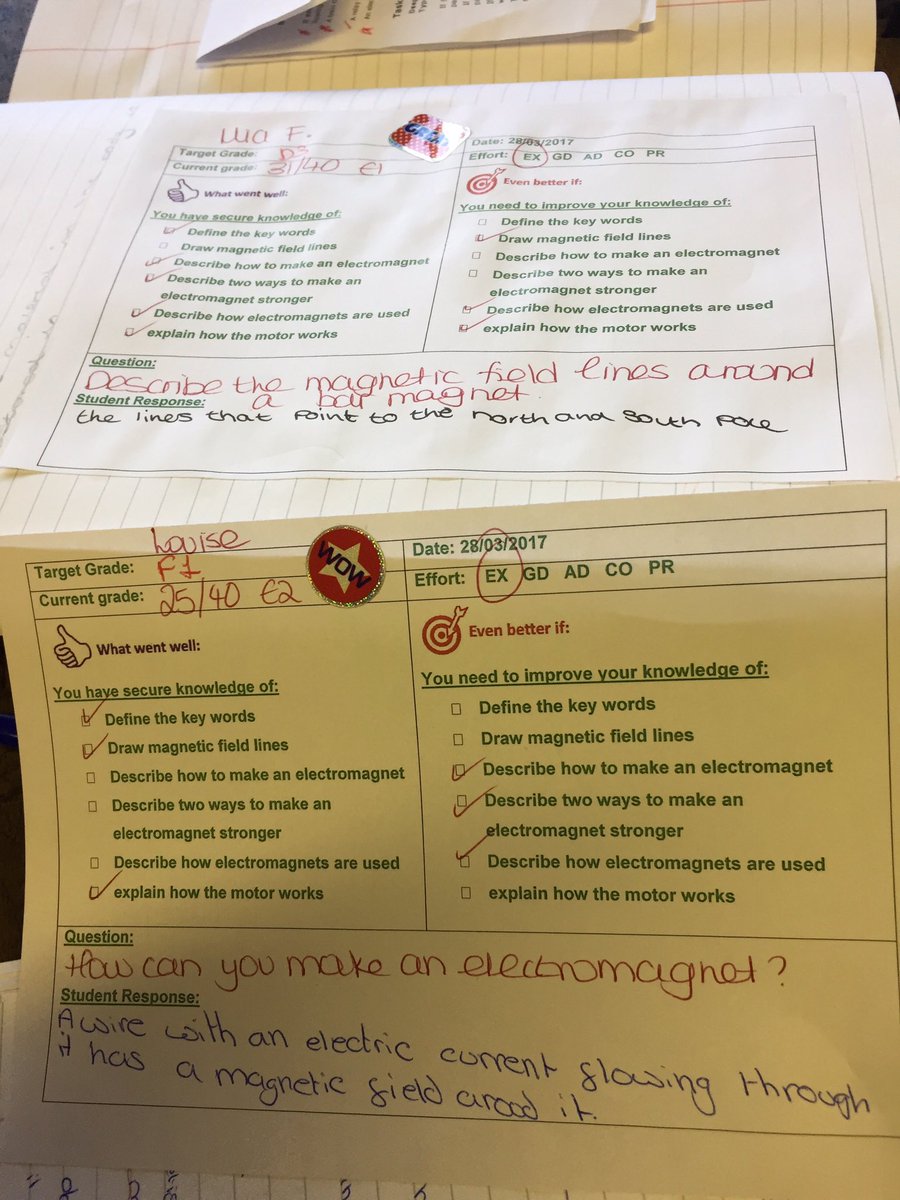 Task
Lula F.
Target Grade: D3
Current grade: 31/40 E1
Date: 28/03/2017
Effort: EX GD AD CO PR
What went well:
You have secure knowledge of:
Define the key words
Draw magnetic field lines
Describe how to make an electromagnet
Describe two ways to make an
electromagnet stronger
Describe how electromagnets are used
explain how the motor works
Even better if:
You need to improve your knowledge of:
Define the key words
Draw magnetic field lines
Describe how to make an electromagnet
Describe two ways to make an
electromagnet stronger
Describe how electromagnets are used
explain how the motor works
Question:
Describe the magnetic field lines around
a bar magnet.
Student Response:
the lines that point to the north and south Pole
Louise
WOW
Target Grade: F1
Current grade: 25/40 E2
Date: 28/03/2017
Effort: EX GD AD CO PR
What went well:
You have secure knowledge of:
Define the key words
Draw magnetic field lines
Describe how to make an electromagnet
Describe two ways to make an
electromagnet stronger
Describe how electromagnets are used
explain how the motor works
Even better if:
You need to improve your knowledge of:
Define the key words
Draw magnetic field lines
Describe how to make an electromagnet
Describe two ways to make an
electromagnet stronger
Describe how electromagnets are used
explain how the motor works
Question:
How can you make an electromagnet?
Student Response:
A wire with an electric current flowing through
it has a magnetic field arood it.